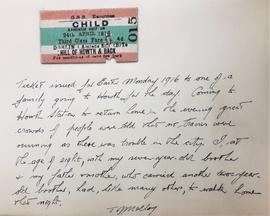 G.N.R. Excursion
CHILD
24th APRIL 1916
Third Class Fare 4d
DUBLIN (Amiens St) to
HILL OF HOWTH & BACK
015
Ticket issued for Easter Monday 1916 to one of a
family going to Howth for the day. Coming to
Howth Station to return home in the evening great
crowds of people were told that no trains were
running as there was trouble in the city. I, at
the age of eight, with my seven-year-old brother
& my father & mother, who carried another two-year-
old brother, had, like many others, to walk home
that night.
T.